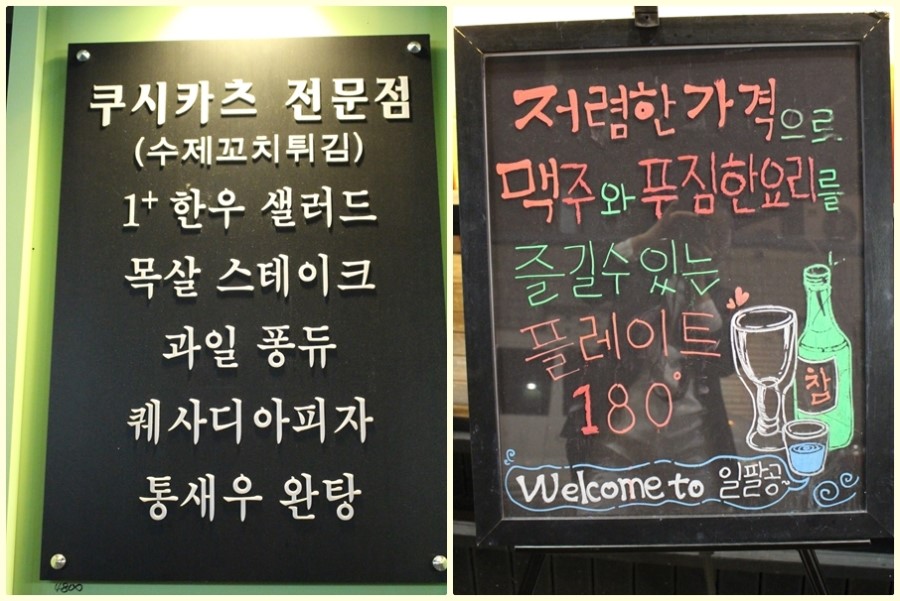 쿠시카츠 전문점
(수제꼬치튀김)
1+ 한우 샐러드
목살 스테이크
과일 퐁듀
퀘사디아피자
통새우 완탕
저렴한 가격으로
맥주와 푸짐한요리를
즐길수 있는
플레이트
180°
참
Welcome to 일팔공~